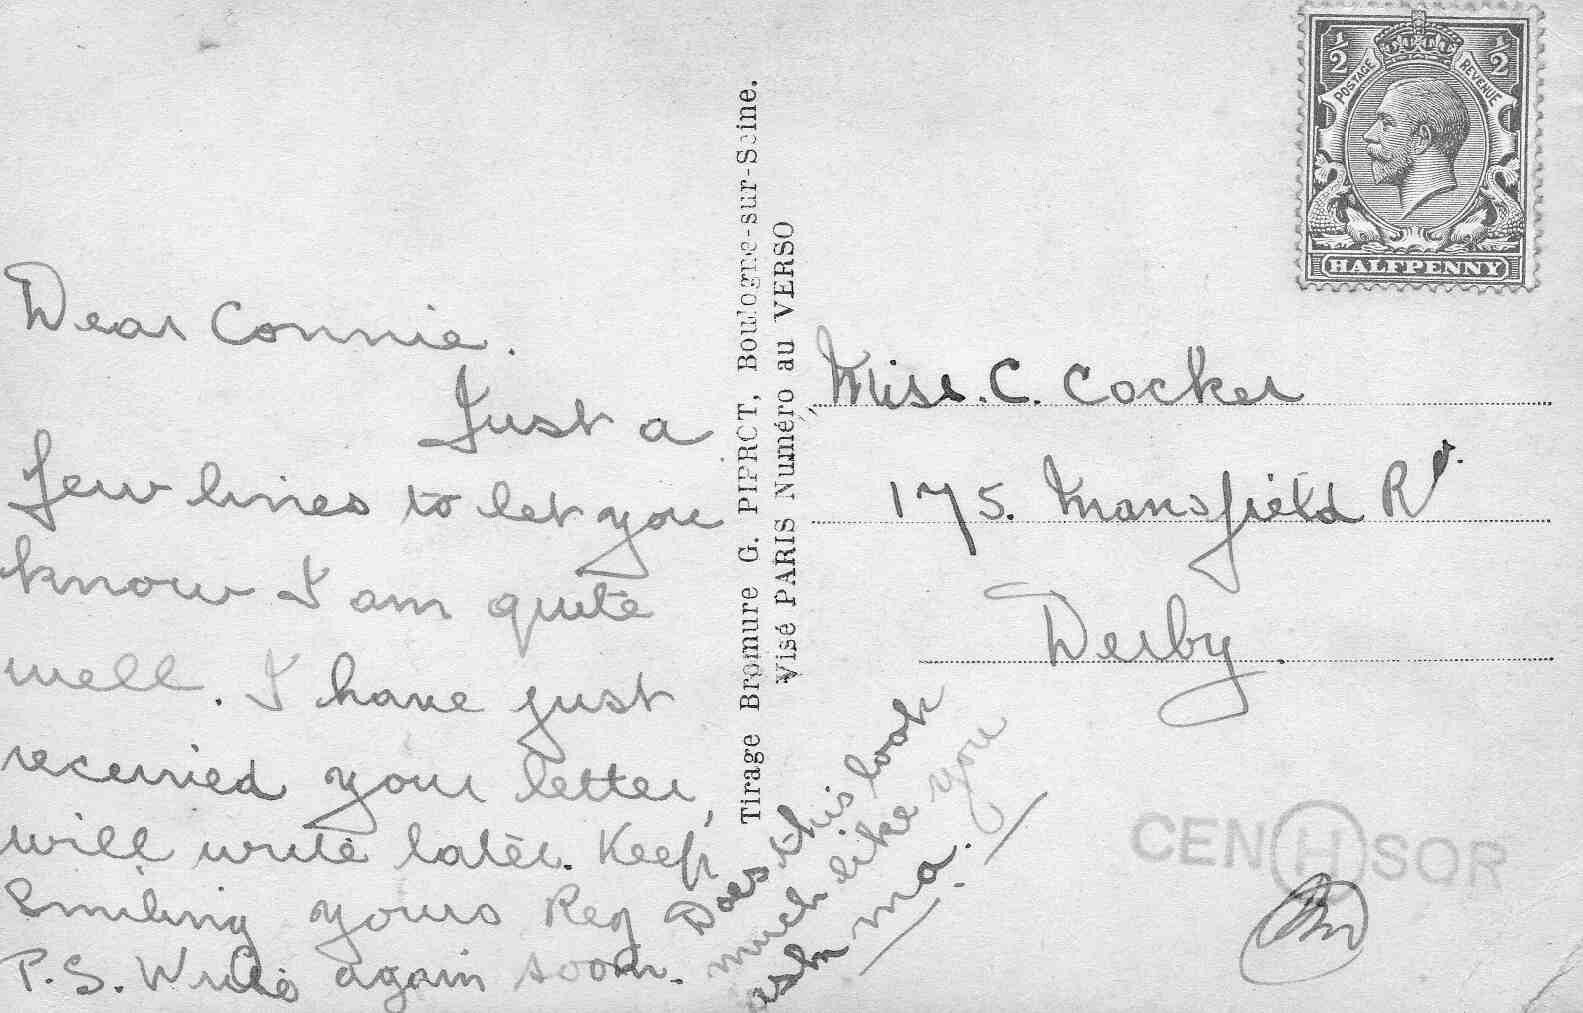 Dear Connie.
Just a
few lines to let you
know I am quite
well. I have just
received your letter,
will write later. Keep
Smiling yours Reg
P.S. Write again soon.
Does this look
much like you
ma.
Tirage Bromure G. PIPROT, Boulogne-sur-Seine.
Visé PARIS Numéro au VERSO
½ ½
POSTAGE REVENUE
HALFPENNY
Miss. C. Cocker
175. Mansfield Rd.
Derby.
CEN H SOR